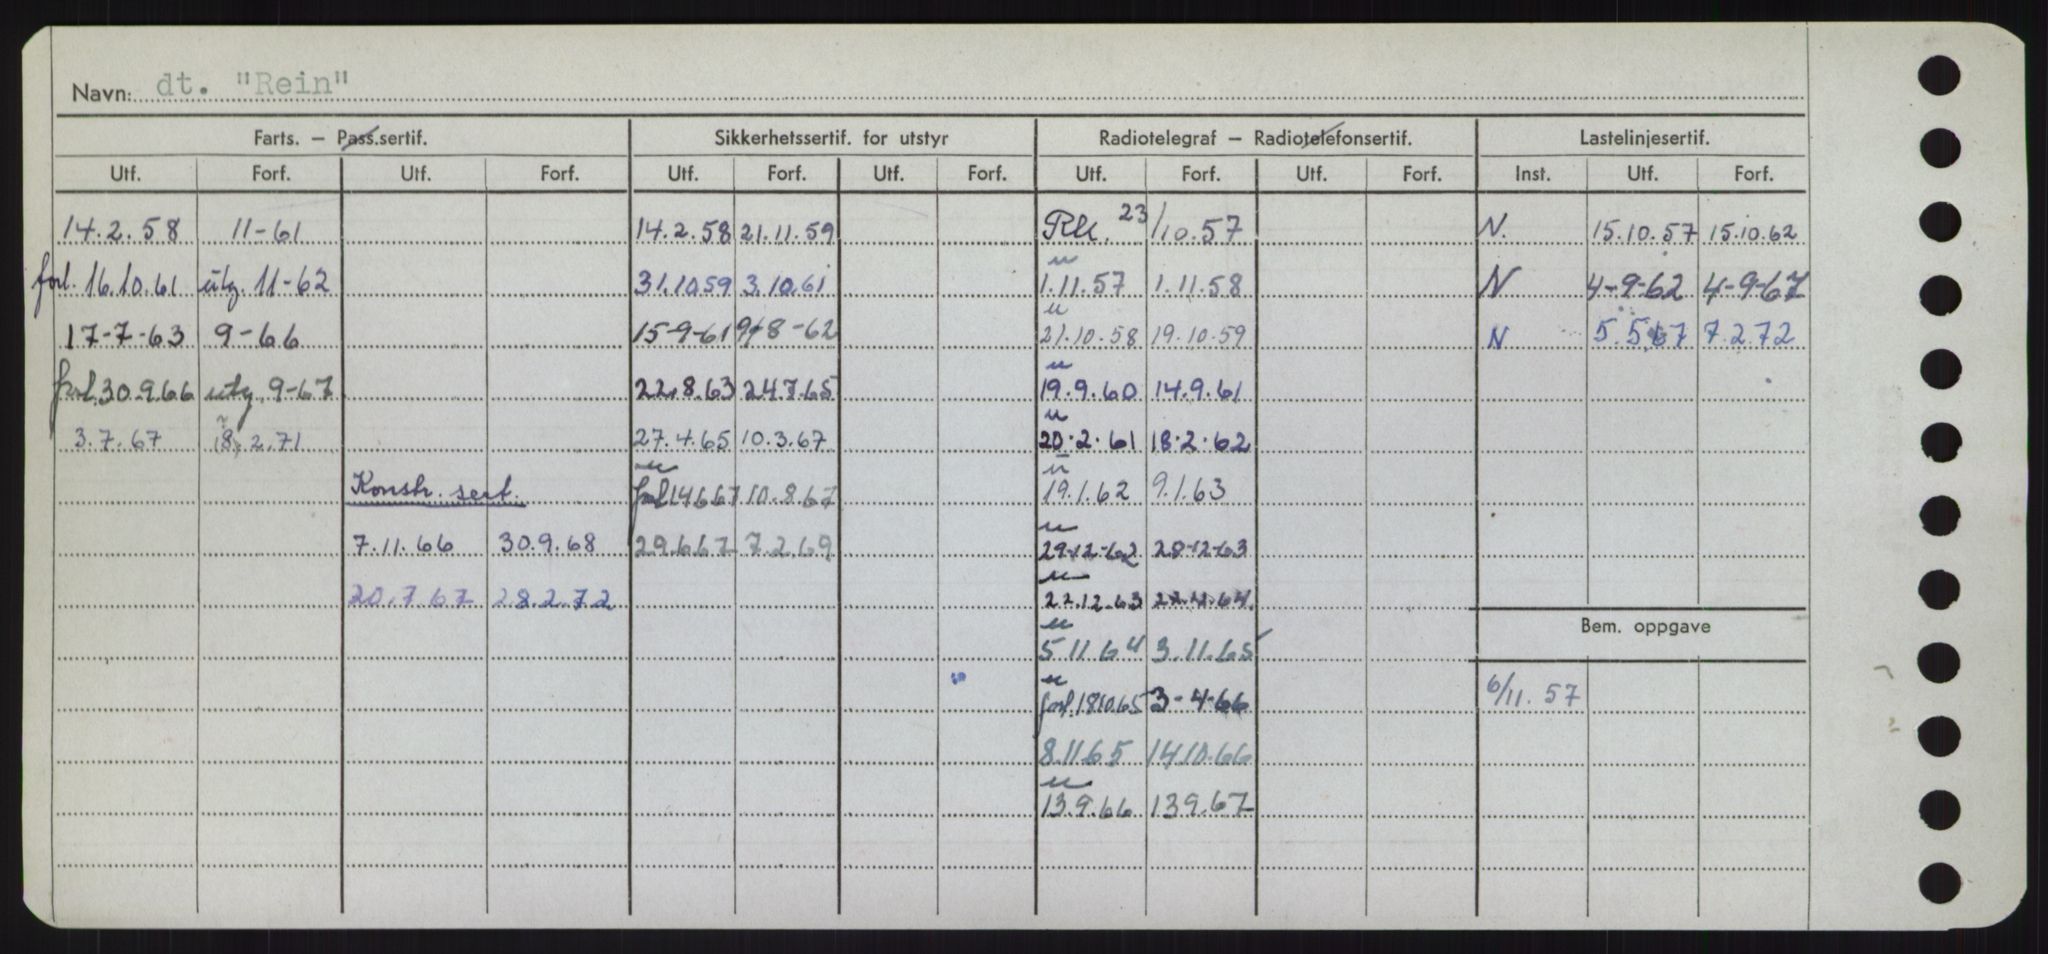 Navn: dt. "Rein"
Farts. – Pass.sertif. Sikkerhetssertif. for utstyr Radiotelegraf – Radiotelefonsertif. Lastelinjesertif.
Utf. Forf. Utf. Forf. Utf. Forf. Utf. Forf. Utf. Forf. Utf. Forf. Inst. Utf. Forf.
14.2.58 11-61 14.2.58 21.11.59 23/10.57 N. 15.10.57 15.10.62
forl. 16.10.61 utg. 11-62 31.10.59 3.10.61 1.11.57 1.11.58 N 4-9-62 4-9-67
17-7-63 9-66 15-9-61 9-8-62 21.10.58 19.10.59 N 5.5.67 7.2.72
forl. 30.9.66 utg. 9-67 22.8.63 24.7.65 19.9.60 14.9.61
3.7.67 2.71 27.4.65 10.3.67 20.2.61 18.2.62
Konstr. sert. forl 14.6.67 10.8.67 19.1.62 9.1.63
7.11.66 30.9.68 29.6.67 7.2.69 29-12-62 28-12-63
20.7.67 28.2.72 22.12.63
Bem. oppgave
5.11.64 3.11.65
6/11.57
forl. 18.10.65 3-4-66
8.11.65 14.10.66
13.9.66 13.9.67